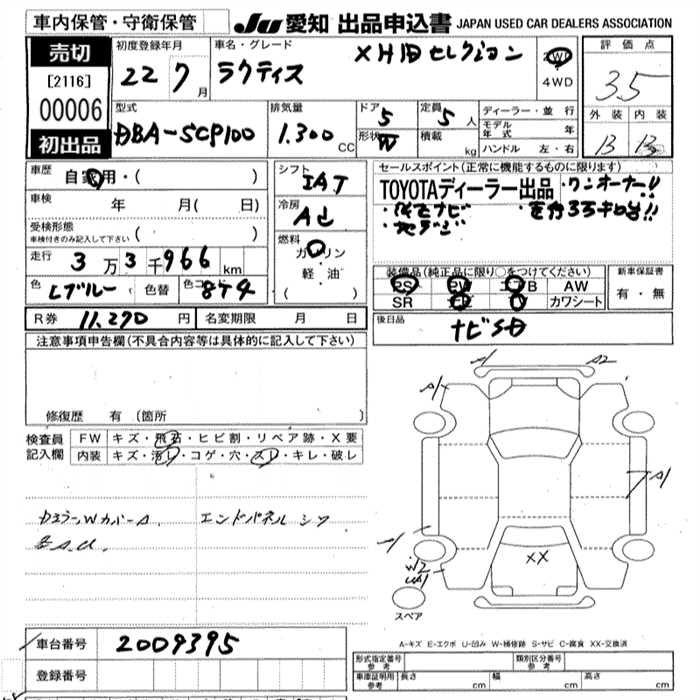 車内保管・守衛保管
JU 愛知 出品申込書 JAPAN USED CAR DEALERS ASSOCIATION
売切
[2116]
00006
初出品
初度登録年月
22 7月
車名・グレード
ラクティス
X HIDセレクション
2WD
4WD
評価点
3.5
外装 内装
B B
型式
DBA-SCP100
排気量
1.300 CC
ドア 5
形状 W
定員 5 人
積載 kg
ディーラー・並行
モデル年式 年
ハンドル 左・右
車歴
自家用・( )
車検 年 月( 日)
受検形態
車検付きのみ記入して下さい ( )
走行 3万3千966 km
色 Lブルー 色替 色コード 8T4
シフト
IAT
冷房
AC
燃料
ガソリン
軽・油
( )
セールスポイント(正常に機能するものに限ります)
TOYOTAディーラー出品・ワンオーナー!!
・純正ナビ ・走行33キロ台!!
・地デジ
装備品(純正品に限り○をつけてください)
PS PW エアB AW
SR カワシート
新車保証書
有・無
後日品
ナビSD
R券 11,290 円 名変期限 月 日
注意事項申告欄(不具合内容等は具体的に記入して下さい)
修復歴 有 (箇所 )
検査員記入欄
FW キズ・飛石・ヒビ割・リペア跡・X要
内装 キズ・汚レ・コゲ・穴・スレ・キレ・破レ
ドアミラーWカバーA エンドパネル シワ
A1
A2
A1
A1
A1
W2
XX
スペア
A-キズ E-エクボ U-凹み W-補修跡 S-サビ C-腐食 XX-交換済
車台番号 2009395
登録番号
形式指定番号 参考
類別区分番号 参考
車庫証明用 参考 長さ cm 幅 cm 高さ cm